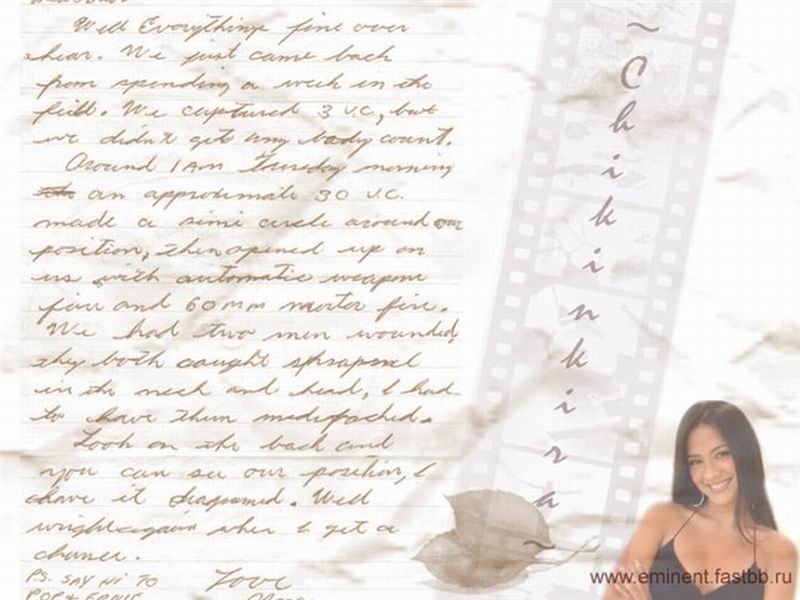 Well Everything fine over
hear. We just came back
from spending a week in the
feild. We captured 3 V.C, but
we didn't get any body count.
Around 1 AM Thursday morning
an approximate 30 V.C.
made a simi circle around our
position, then opened up on
us with automatic weapons
fire and 60 mm morter fire.
We had two men wounded,
they both caught sphrapnel
in the neck and head, I had
to have them medifached.
Look on the back and
you can see our position, I
have it diagramed. Well
wright again when I get a
chance.
P.S. SAY HI TO Love
POP &
~Chikinkira~
www.eminent.fastbb.ru